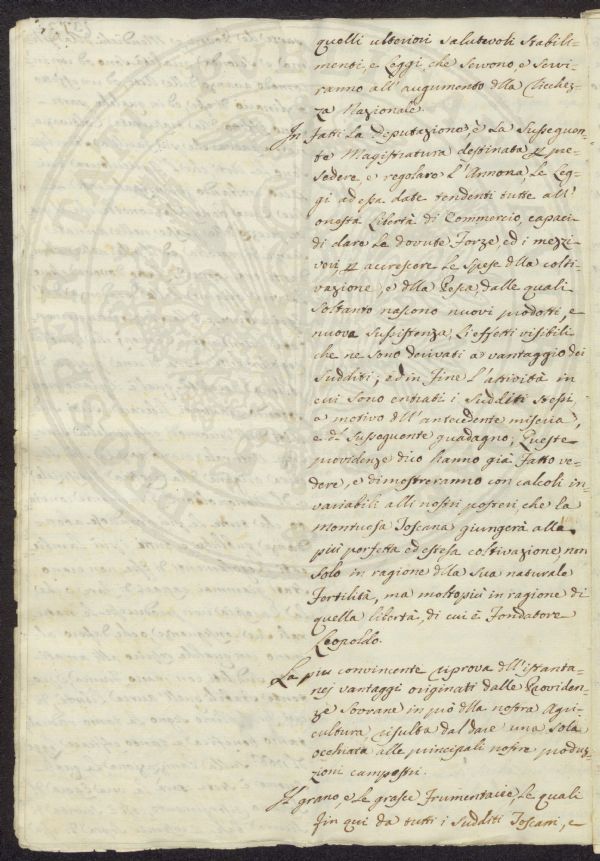 quelli ulteriori salutevoli stabili-
menti, e Leggi, che servono, e servi-
ranno all'augumento dlla Ricchez-
za Nazionale.
In fatti la Deputazione è la susseguen-
te Magistratura destinata p pre-
sedere, e regolare l'Annona, le Leg-
gi ad essa date tendenti tutte all'
onesta libertà di Commercio, capaci
di dare le dovute forze, ed i mezzi
veri p accrescere le spese dlla colti-
vazione, e dlla Pesca, dalle quali
soltanto nascono nuovi prodotti, e
nuova sussistenza, li effetti visibili
che ne sono derivati a vantaggio dei
sudditi, ed in fine l'attività in
cui sono entrati i sudditi stessi,
a motivo dll'antecedente miseria,
e dl susseguente guadagno; Queste
providenze dico hanno già fatto ve-
dere, e dimostreranno con calcoli in-
variabili alli nostri posteri, che la
Montuosa Toscana giungerà alla
più perfetta ed estesa coltivazione, non
solo in ragione dlla sua naturale
fertilità, ma molto più in ragione di
quella libertà, di cui è fondatore
Leopoldo.
La più convincente riprova dll'istanta-
nei vantaggi originati dalle Providen-
ze Sovrane in prò dlla nostra Agri-
cultura, risulta dal dare una sola
occhiata alle principali nostre produ-
zioni campestri.
Il grano, e le grasce frumentarie, le quali
fin qui da tutti i sudditi Toscani, e